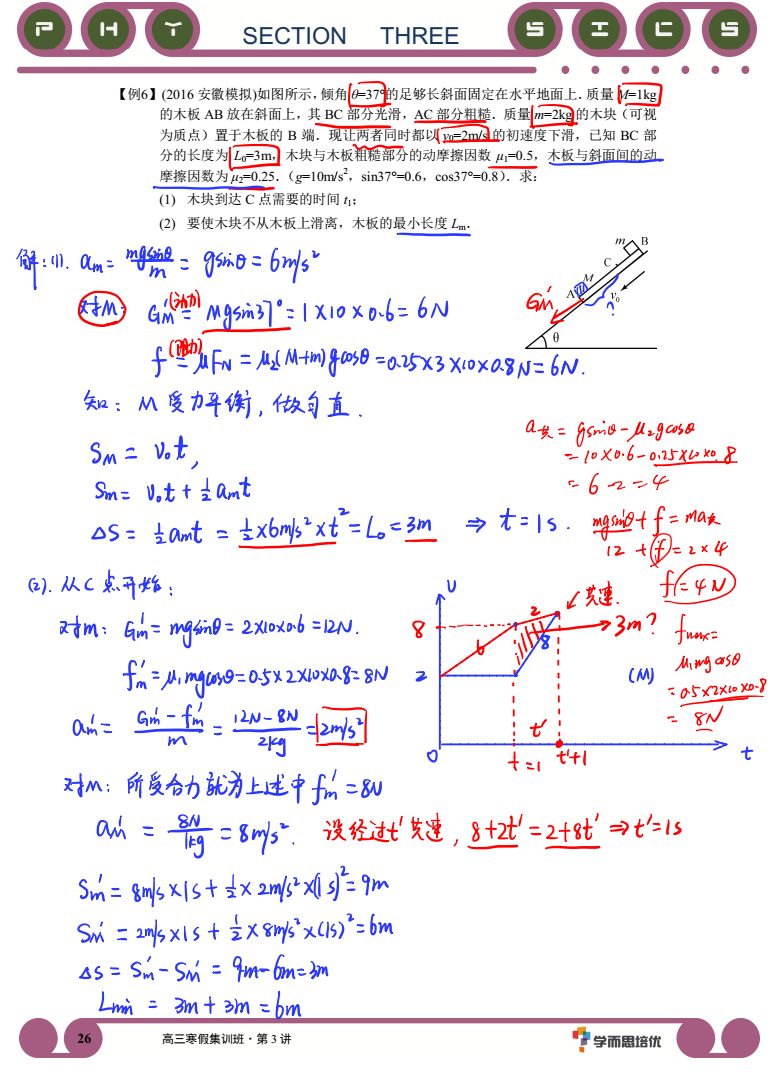 P H Y SECTION THREE S I C S
【例6】(2016 安徽模拟)如图所示,倾角 θ=37°的足够长斜面固定在水平地面上．质量 M=1kg
的木板 AB 放在斜面上，其 BC 部分光滑，AC 部分粗糙．质量 m=2kg 的木块（可视
为质点）置于木板的 B 端．现让两者同时都以 v₀=2m/s 的初速度下滑，已知 BC 部
分的长度为 L₀=3m，木块与木板粗糙部分的动摩擦因数 μ₁=0.5，木板与斜面间的动
摩擦因数为 μ₂=0.25．（g=10m/s²，sin37°=0.6，cos37°=0.8）．求：
(1) 木块到达 C 点需要的时间 t₁；
(2) 要使木块不从木板上滑离，木板的最小长度 Lₘ．
m B
C
M
A
v₀
?
GM'
θ
解：(1). am = mgsinθ/m = gsinθ = 6m/s²
对M: GM'(动力) = Mgsin37° = 1×10×0.6 = 6N
f(阻力) = μFN = μ₂(M+m)gcosθ = 0.25×3×10×0.8N = 6N.
知：M 受力平衡，做匀直.
SM = v₀t,
Sm = v₀t + ½amt
ΔS = ½amt = ½×6m/s²×t² = L₀ = 3m ⇒ t = 1s.
a共 = gsinθ - μ₂gcosθ
= 10×0.6 - 0.25×10×0.8
= 6 - 2 = 4
mgsinθ + f = ma共
12 + f = 2×4
f = 4N
fmax =
μ₁mgcosθ
= 0.5×2×10×0.8
= 8N
(2). 从C点开始：
对m: Gm' = mgsinθ = 2×10×0.6 = 12N.
fm' = μ₁mgcosθ = 0.5×2×10×0.8 = 8N
am' = (Gm' - fm')/m = (12N - 8N)/2kg = 2m/s²
υ
共速.
8
2
6
2
8
3m?
(M)
t'
0
t=1
t'+1
t
对M: 所受合力就为上述中 fm' = 8N
aM' = 8N/1kg = 8m/s². 设经过t'共速，8+2t' = 2+8t' ⇒ t'=1s
Sm' = 8m/s×1s + ½×2m/s²×(1s)² = 9m
SM' = 2m/s×1s + ½×8m/s²×(1s)² = 6m
ΔS = Sm' - SM' = 9m-6m=3m
Lmin = 3m + 3m = 6m
26 高三寒假集训班·第 3 讲 学而思培优